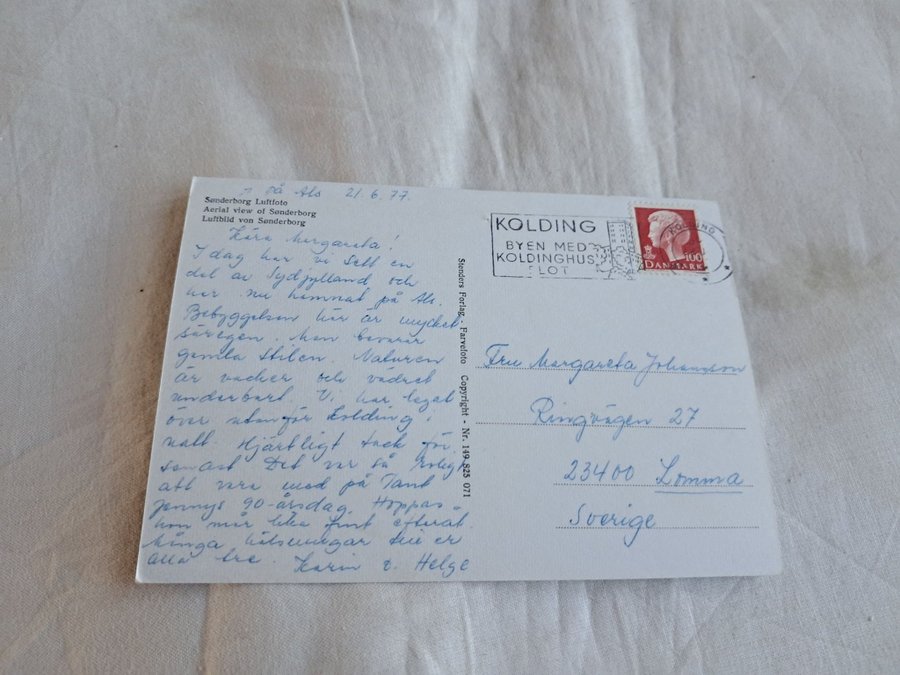 på Als 21.6.77.
Sønderborg Luftfoto
Aerial view of Sønderborg
Luftbild von Sønderborg
Kära Margareta!
I dag har vi sett en
del av Sydjylland, och
har nu hamnat på Als.
Bebyggelsen här är mycket
säregen. Man bevarar
gamla stilen. Naturen
är vacker och vädret
underbart. Vi har legat
över utanför Kolding i
natt. Hjärtligt tack för
senast. Det var så roligt
att vara med på Tant
Jennys 90-årsdag. Hoppas
hon mår lika fint efteråt.
Många hälsningar till er
alla tre. Karin o. Helge
Stenders Forlag - Farvefoto Copyright - Nr. 149 825 071
KOLDING
BYEN MED
KOLDINGHUS
SLOT
KOLDING
100
DANMARK
Fru Margareta Johansson
Ringvägen 27
23400 Lomma
Sverige